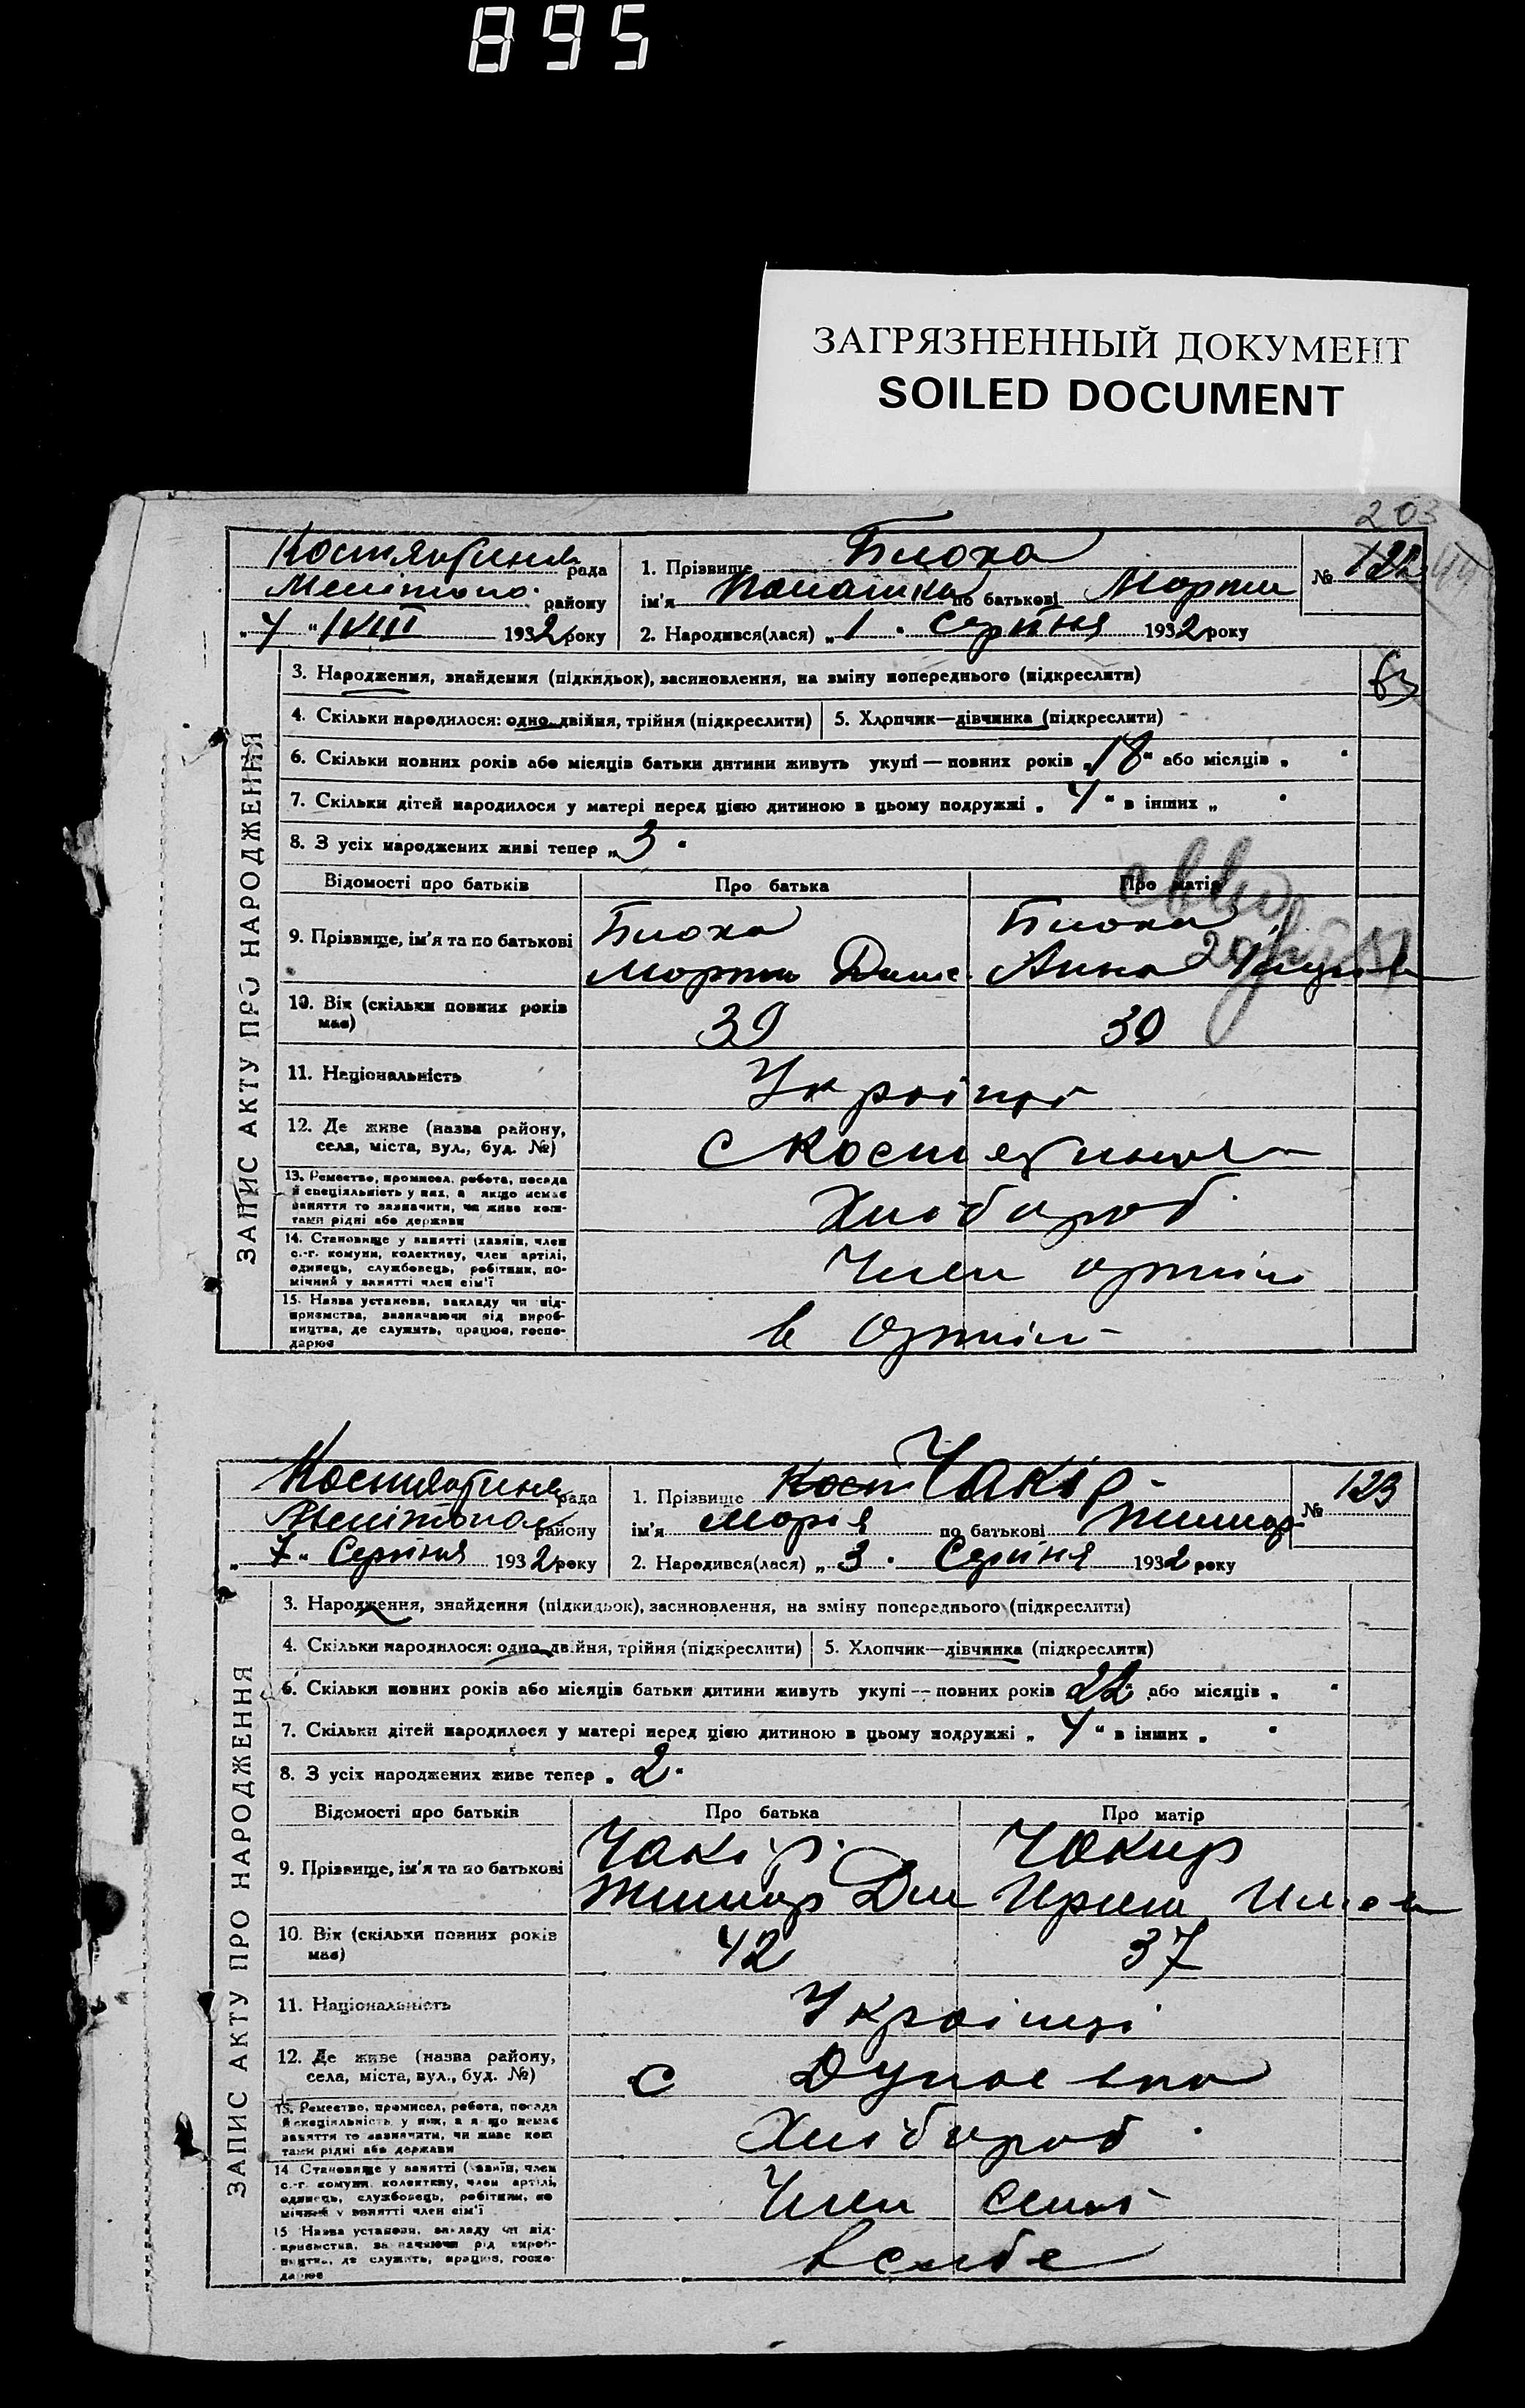 895
ЗАГРЯЗНЕННЫЙ ДОКУМЕНТ
SOILED DOCUMENT
203
рада
району
"7" VIII 1932 року
1. Прізвище Блоха
ім'я по батькові
2. Народився(лася) „1" Серпня 1932 року
№ 122
63
ЗАПИС АКТУ ПРО НАРОДЖЕННЯ
3. Народження, знайдення (підкидьок), засиновлення, на зміну попереднього (підкреслити)
4. Скільки народилося: одно, двійня, трійня (підкреслити)
5. Хлопчик—дівчинка (підкреслити)
6. Скільки повних років або місяців батьки дитини живуть укупі — повних років „ " або місяців „ "
7. Скільки дітей народилося у матері перед цією дитиною в цьому подружжі „ " в інших „ "
8. З усіх народжених живі тепер „3"
Відомості про батьків
Про батька
Про матір
9. Прізвище, ім'я та по батькові
Блоха
Блоха
Анна
10. Вік (скільки повних років має)
39
30
11. Національність
12. Де живе (назва району,
села, міста, вул., буд. №)
с
13. Ремество, промисел, робота, посада
й спеціяльність у них, а якщо немає
заняття то зазначити, чи живе кош-
тами рідні або держави
Хлібороб
14. Становище у занятті (хазяїн, член
с.-г. комуни, колективу, член артілі,
одинець, службовець, робітник, по-
мічний у занятті член сім'ї
Член артіли
15. Назва установи, закладу чи під-
приємства, зазначаючи рід вироб-
ництва, де служить, працює, госпо-
дарює
в артіли
рада
району
„7" Серпня 1932 року
1. Прізвище Чакір
ім'я Марія по батькові
2. Народився(лася) „3" Серпня 1932 року
№ 123
ЗАПИС АКТУ ПРО НАРОДЖЕННЯ
3. Народження, знайдення (підкидьок), засиновлення, на зміну попереднього (підкреслити)
4. Скільки народилося: одно, двійня, трійня (підкреслити)
5. Хлопчик—дівчинка (підкреслити)
6. Скільки повних років або місяців батьки дитини живуть укупі — повних років „22" або місяців „ "
7. Скільки дітей народилося у матері перед цією дитиною в цьому подружжі „ " в інших „ "
8. З усіх народжених живе тепер „2"
Відомості про батьків
Про батька
Про матір
9. Прізвище, ім'я та по батькові
Чакір
Чакир
10. Вік (скільки повних років має)
42
37
11. Національність
Украінці
12. Де живе (назва району,
села, міста, вул., буд. №)
с Дунаевка
13. Ремество, промисел, робота, посада
й спеціяльність у них, а якщо немає
заняття то зазначити, чи живе кош-
тами рідні або держави
Хлібороб
14. Становище у занятті (хазяїн, член
с.-г. комуни, колективу, член артілі,
одинець, службовець, робітник, по-
мічний у занятті член сім'ї
Член
15. Назва установи, закладу чи під-
приємства, зазначаючи рід вироб-
ництва, де служить, працює, госпо-
дарює
в себе